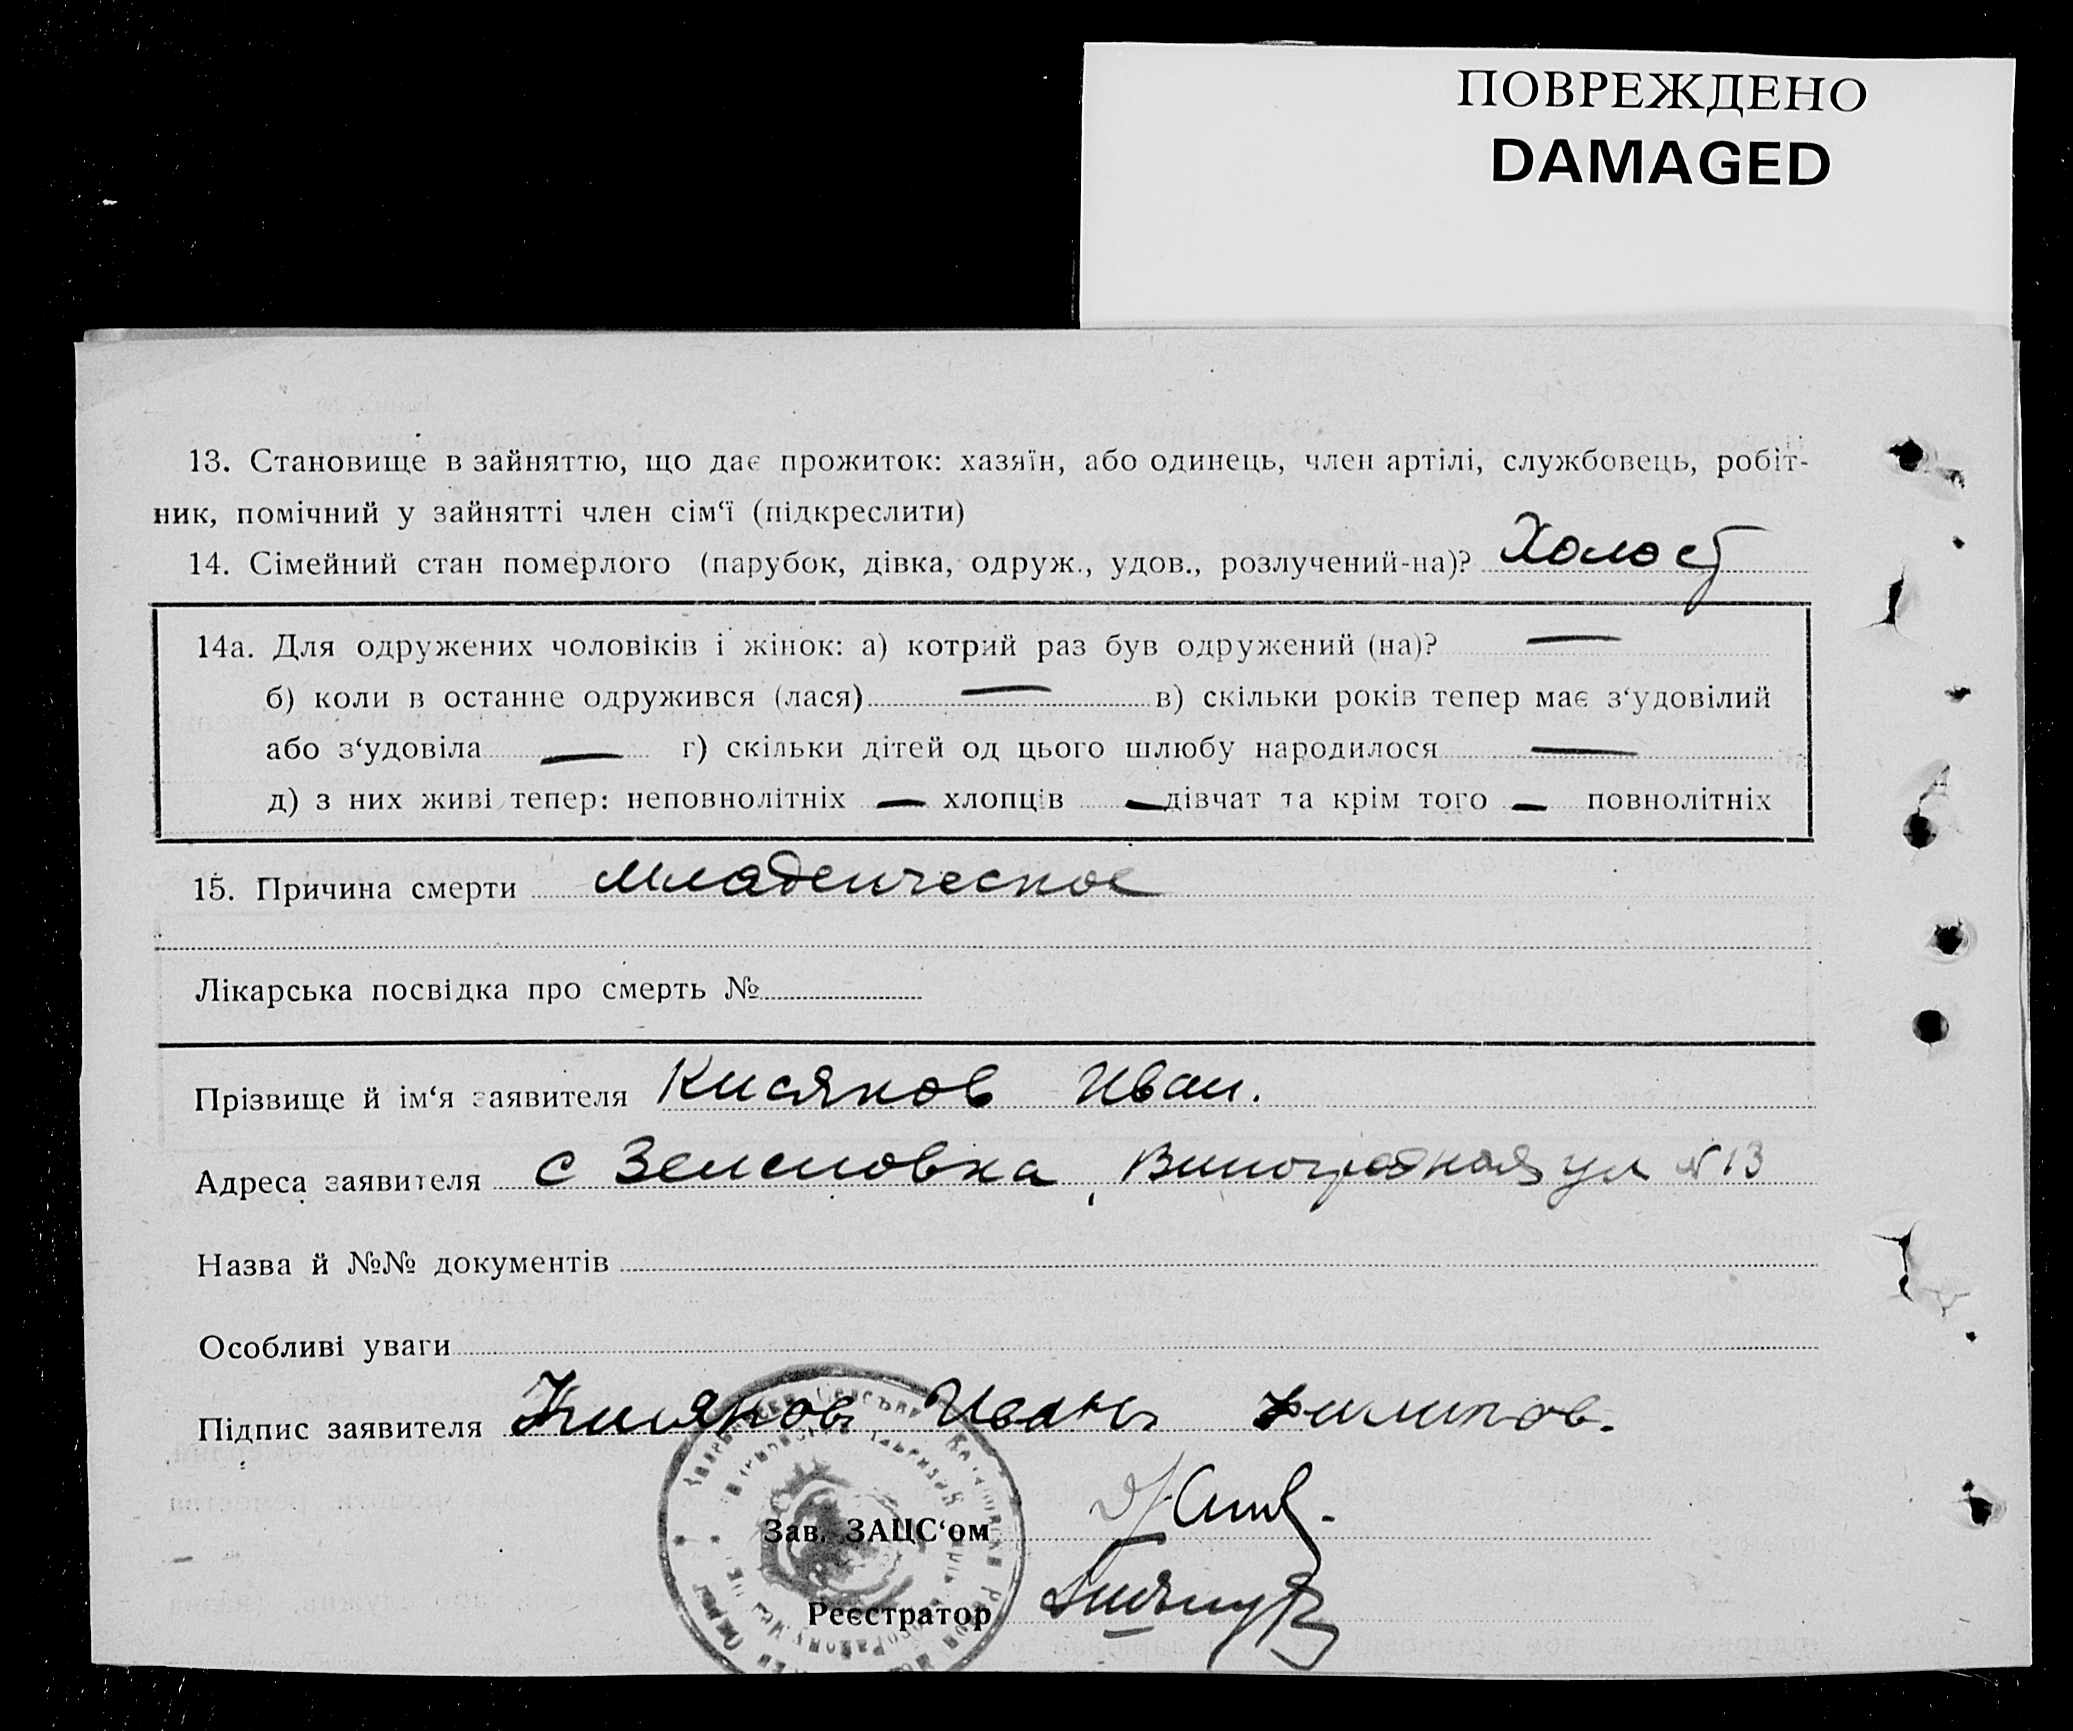 ПОВРЕЖДЕНО
DAMAGED
13. Становище в зайняттю, що дає прожиток: хазяїн, або одинець, член артілі, службовець, робіт-
ник, помічний у зайнятті член сім‘ї (підкреслити)
14. Сімейний стан померлого (парубок, дівка, одруж., удов., розлучений-на)? Холост
14а. Для одружених чоловіків і жінок: а) котрий раз був одружений (на)? —
б) коли в останне одружився (лася) — в) скільки років тепер має з‘удовілий
або з‘удовіла — г) скільки дітей од цього шлюбу народилося —
д) з них живі тепер: неповнолітніх — хлопців — дівчат та крім того — повнолітніх
15. Причина смерти младенческое
Лікарська посвідка про смерть №
Прізвище й ім‘я заявителя Кисяков Иван.
Адреса заявителя с Зеленовка, Виноградная ул № 13
Назва й №№ документів
Особливі уваги
Підпис заявителя Кисяковъ Иванъ Филипов.
Зав. ЗАЦС‘ом
Реєстратор